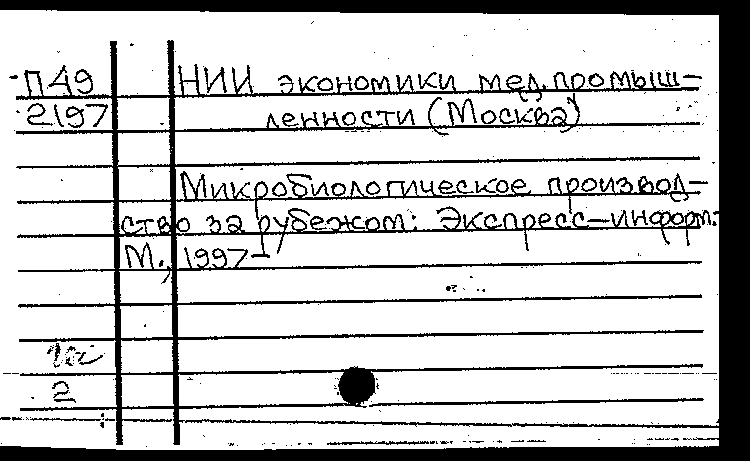 П49 НИИ экономики мед. промыш-
2197 ленности (Москва)
Микробиологическое производ-
ство за рубежом: Экспресс-информ.
М., 1997-
2